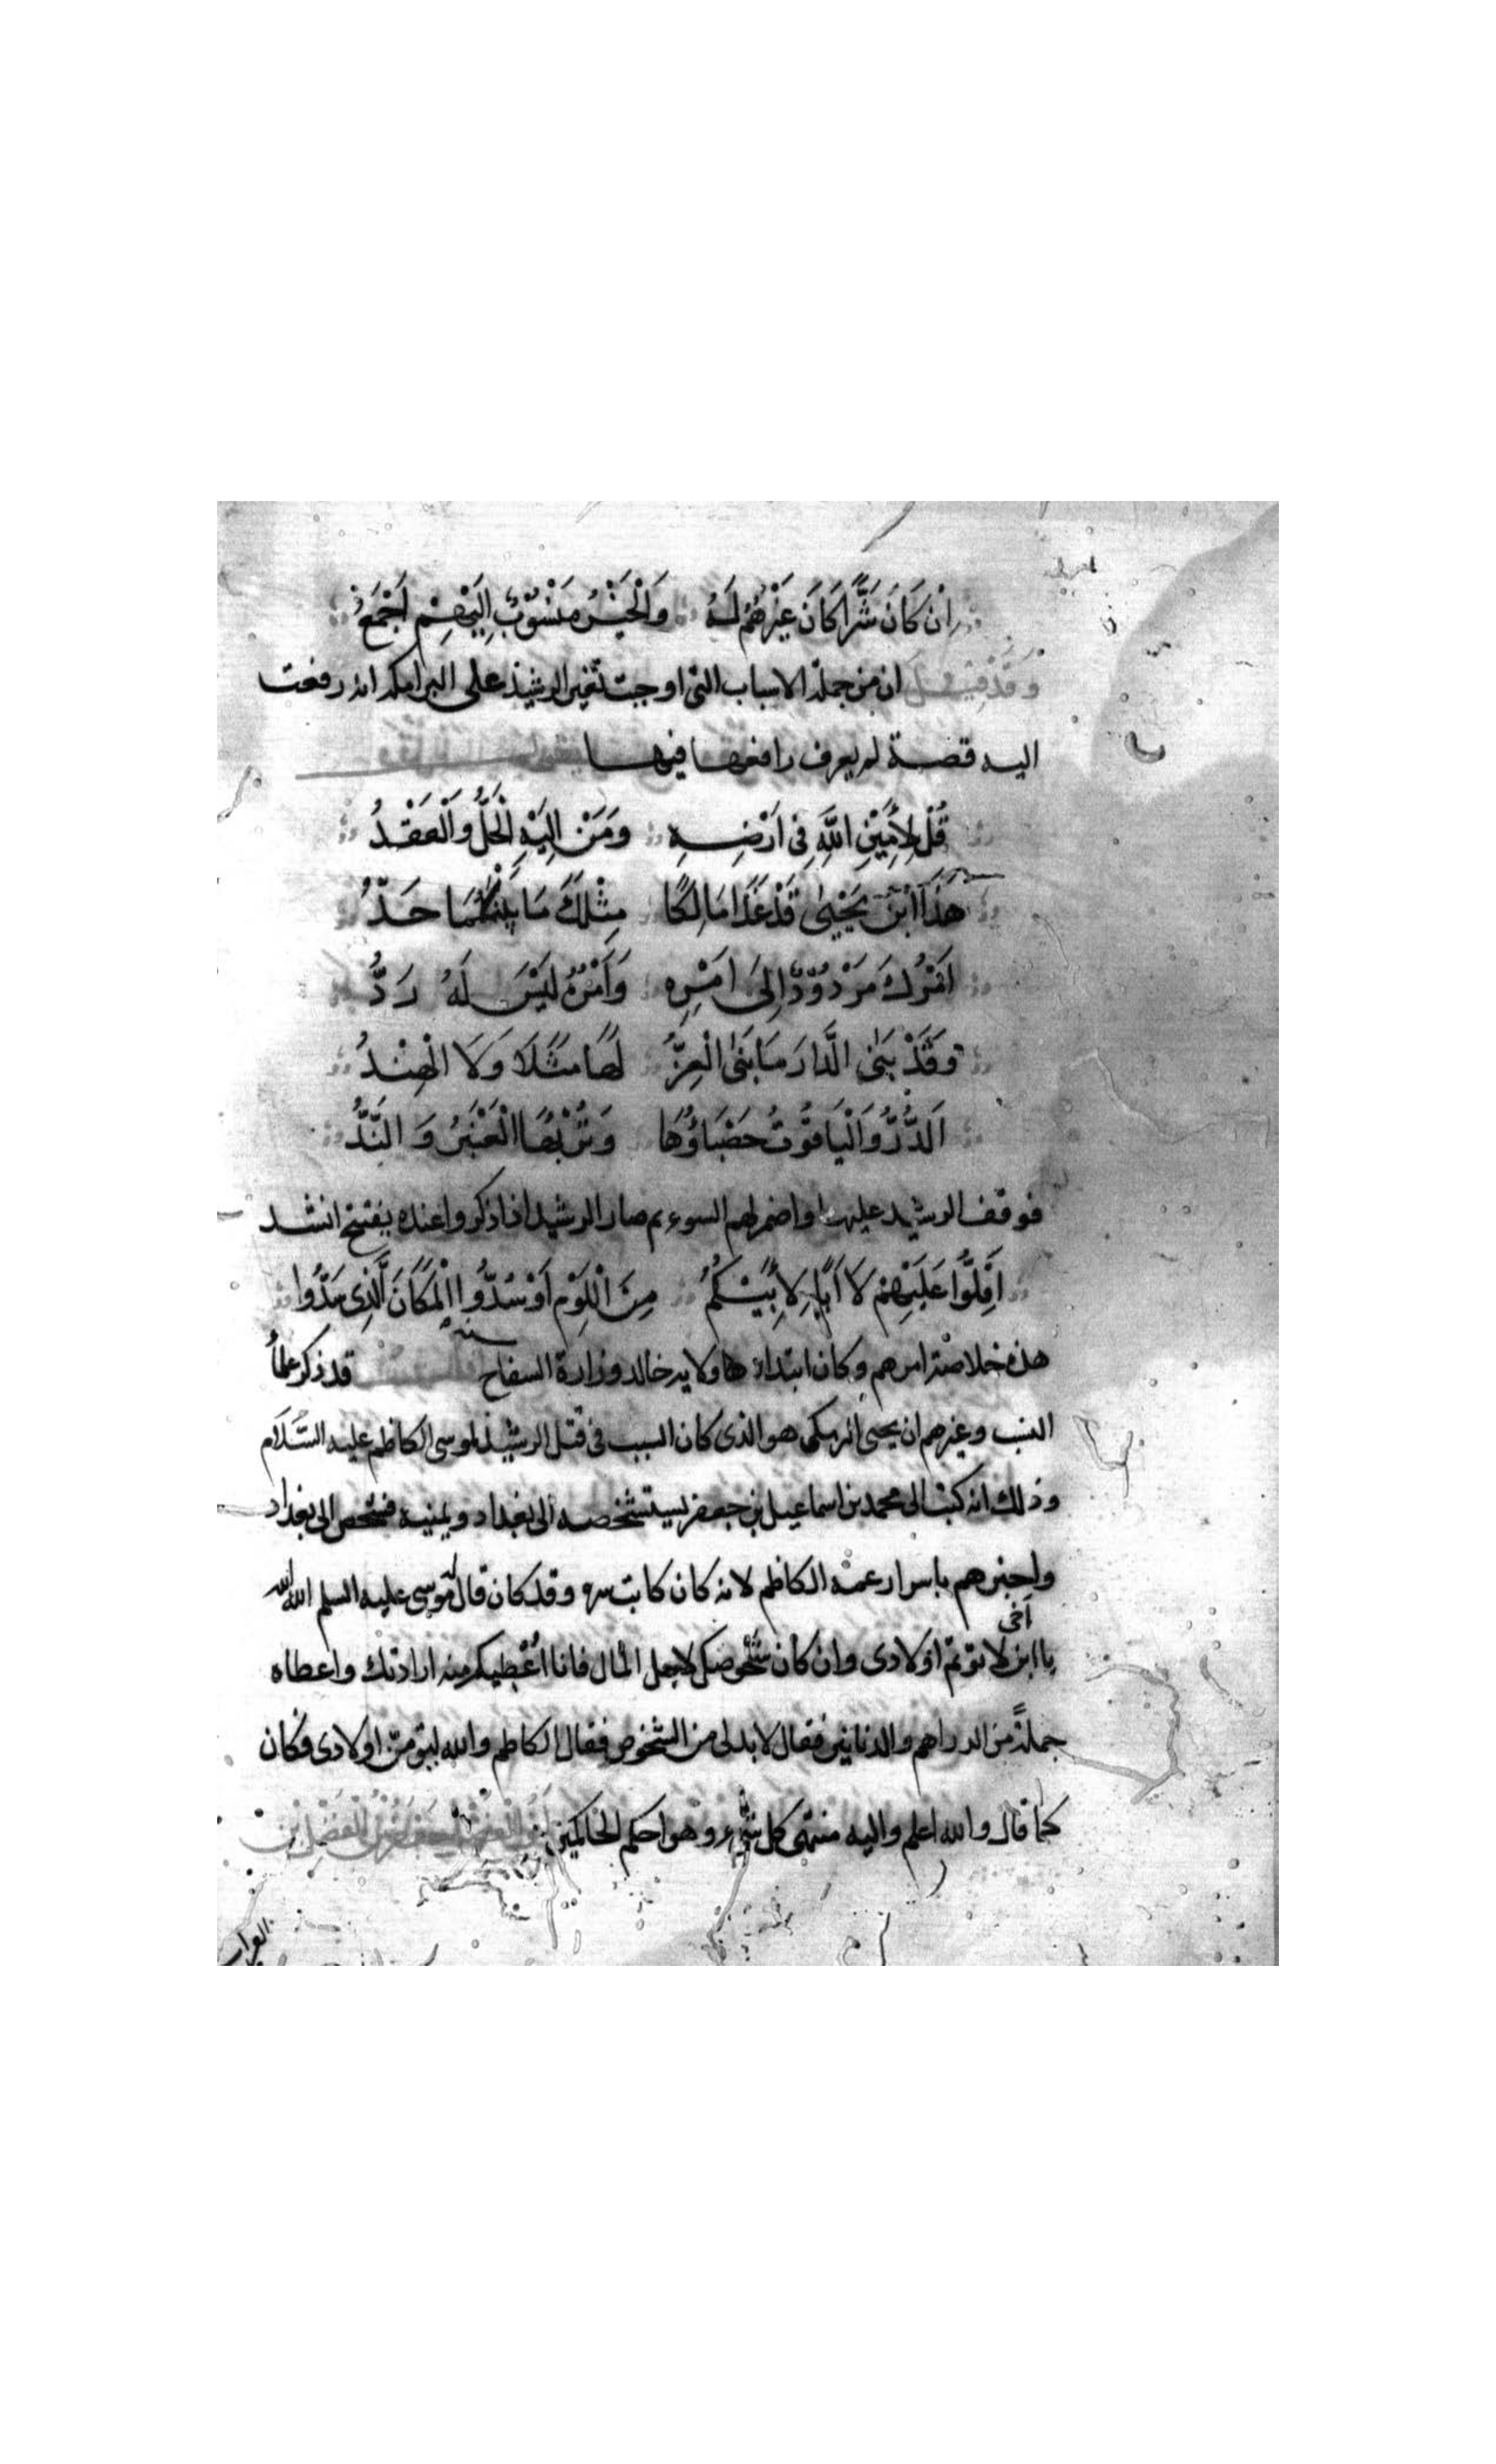 اِنْ كَانَ شَرًّا كَانَ غَيْرُهُمُ لَهُ وَالْخَيْرُ مَنْسُوْبٌ اِلَيْهِمْ اَجْمَعُ
وَقَدْ قِيْلَ ان من جملة الاسباب التى اوجبت تغير الرشيد على البرامكه انه رفعت
اليه قصة لم يعرف رافعها فيها
قُلْ لِأَمِيْنِ اللَّهِ فِى اَرْضِهِ وَمَنْ اِلَيْهِ الْحَلُّ وَالْعَقْدُ
هَذَا ابْنُ يَحْيٰى قَدْ غَدَا مَالِكًا مِثْلَكَ مَا بَيْنَكُمَا حَدُّ
اَمْرُكَ مَرْدُوْدٌ اِلَى اَمْرِهِ وَاَمْرُهُ لَيْسَ لَهُ رَدُّ
وَقَدْ بَنٰى الَّدَارَ مَا بَنٰى الْعِزُّ لَهَا مَثَلًا وَلَا الْهِنْدُ
اَلدُّرُّ وَالْيَاقُوْتُ حَصْبَاؤُهَا وَتُرْبُهَا الْعَنْبَرُ وَ النَّدُّ
فوقف الرشيد عليها واضمر لهم السوء ثم صار الرشيد اذا ذكروا عنده بقبح انشد
اَقِلُّوا عَلَيْهِمْ لَا اَبًا لِاَبِيْكُمُ مِنَ الْلَوْمِ اَوْ سُدُّوا الْمَكَانَ الَّذِى سَدُّوا
هذه خلاصة امرهم وكان ابتداؤها ولاية خالد وزارة السفاح قد ذكر علمأ
النسب وغيرهم ان يحيى البرمكى هو الذى كان السبب فى قتل الرشيد لموسى الكاظم عليه السَّلام
وذلك انه كتب الى محمد بن اسماعيل بن جعفر يستشخصه الى بغداد ويمنيه فشخص الى بغداد
واخبرهم باسرار عمه الكاظم لانه كان كاتب سره وقد كان قال له موسى عليه السلم الله الله
يا ابن اخى لا توتم اولادى وان كان شخوصك لاجل المال فانا اعطيك منه ارادتك واعطاه
جملةً من الدراهم والدنانير فقال لابد لى من الشخوص فقال الكاظم والله ليوتمنّ اولادى فكان
كما قال والله اعلم واليه منتهى كل شىء وهو احكم الحاكمين